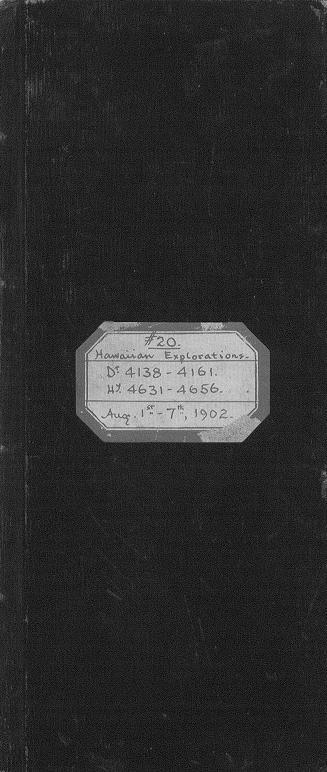 #20.
Hawaiian Explorations.
Dr. 4138 - 4161.
Hy. 4631 - 4656.
Aug. 1st - 7th, 1902.